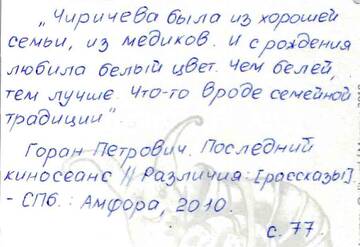 „Чиричева была из хорошей
семьи, из медиков. И с рождения
любила белый цвет. Чем белей,
тем лучше. Что-то вроде семейной
традиции".
Горан Петрович. Последний
киносеанс // Различия: [рассказы].
- СПб.: Амфора, 2010.
с. 77.